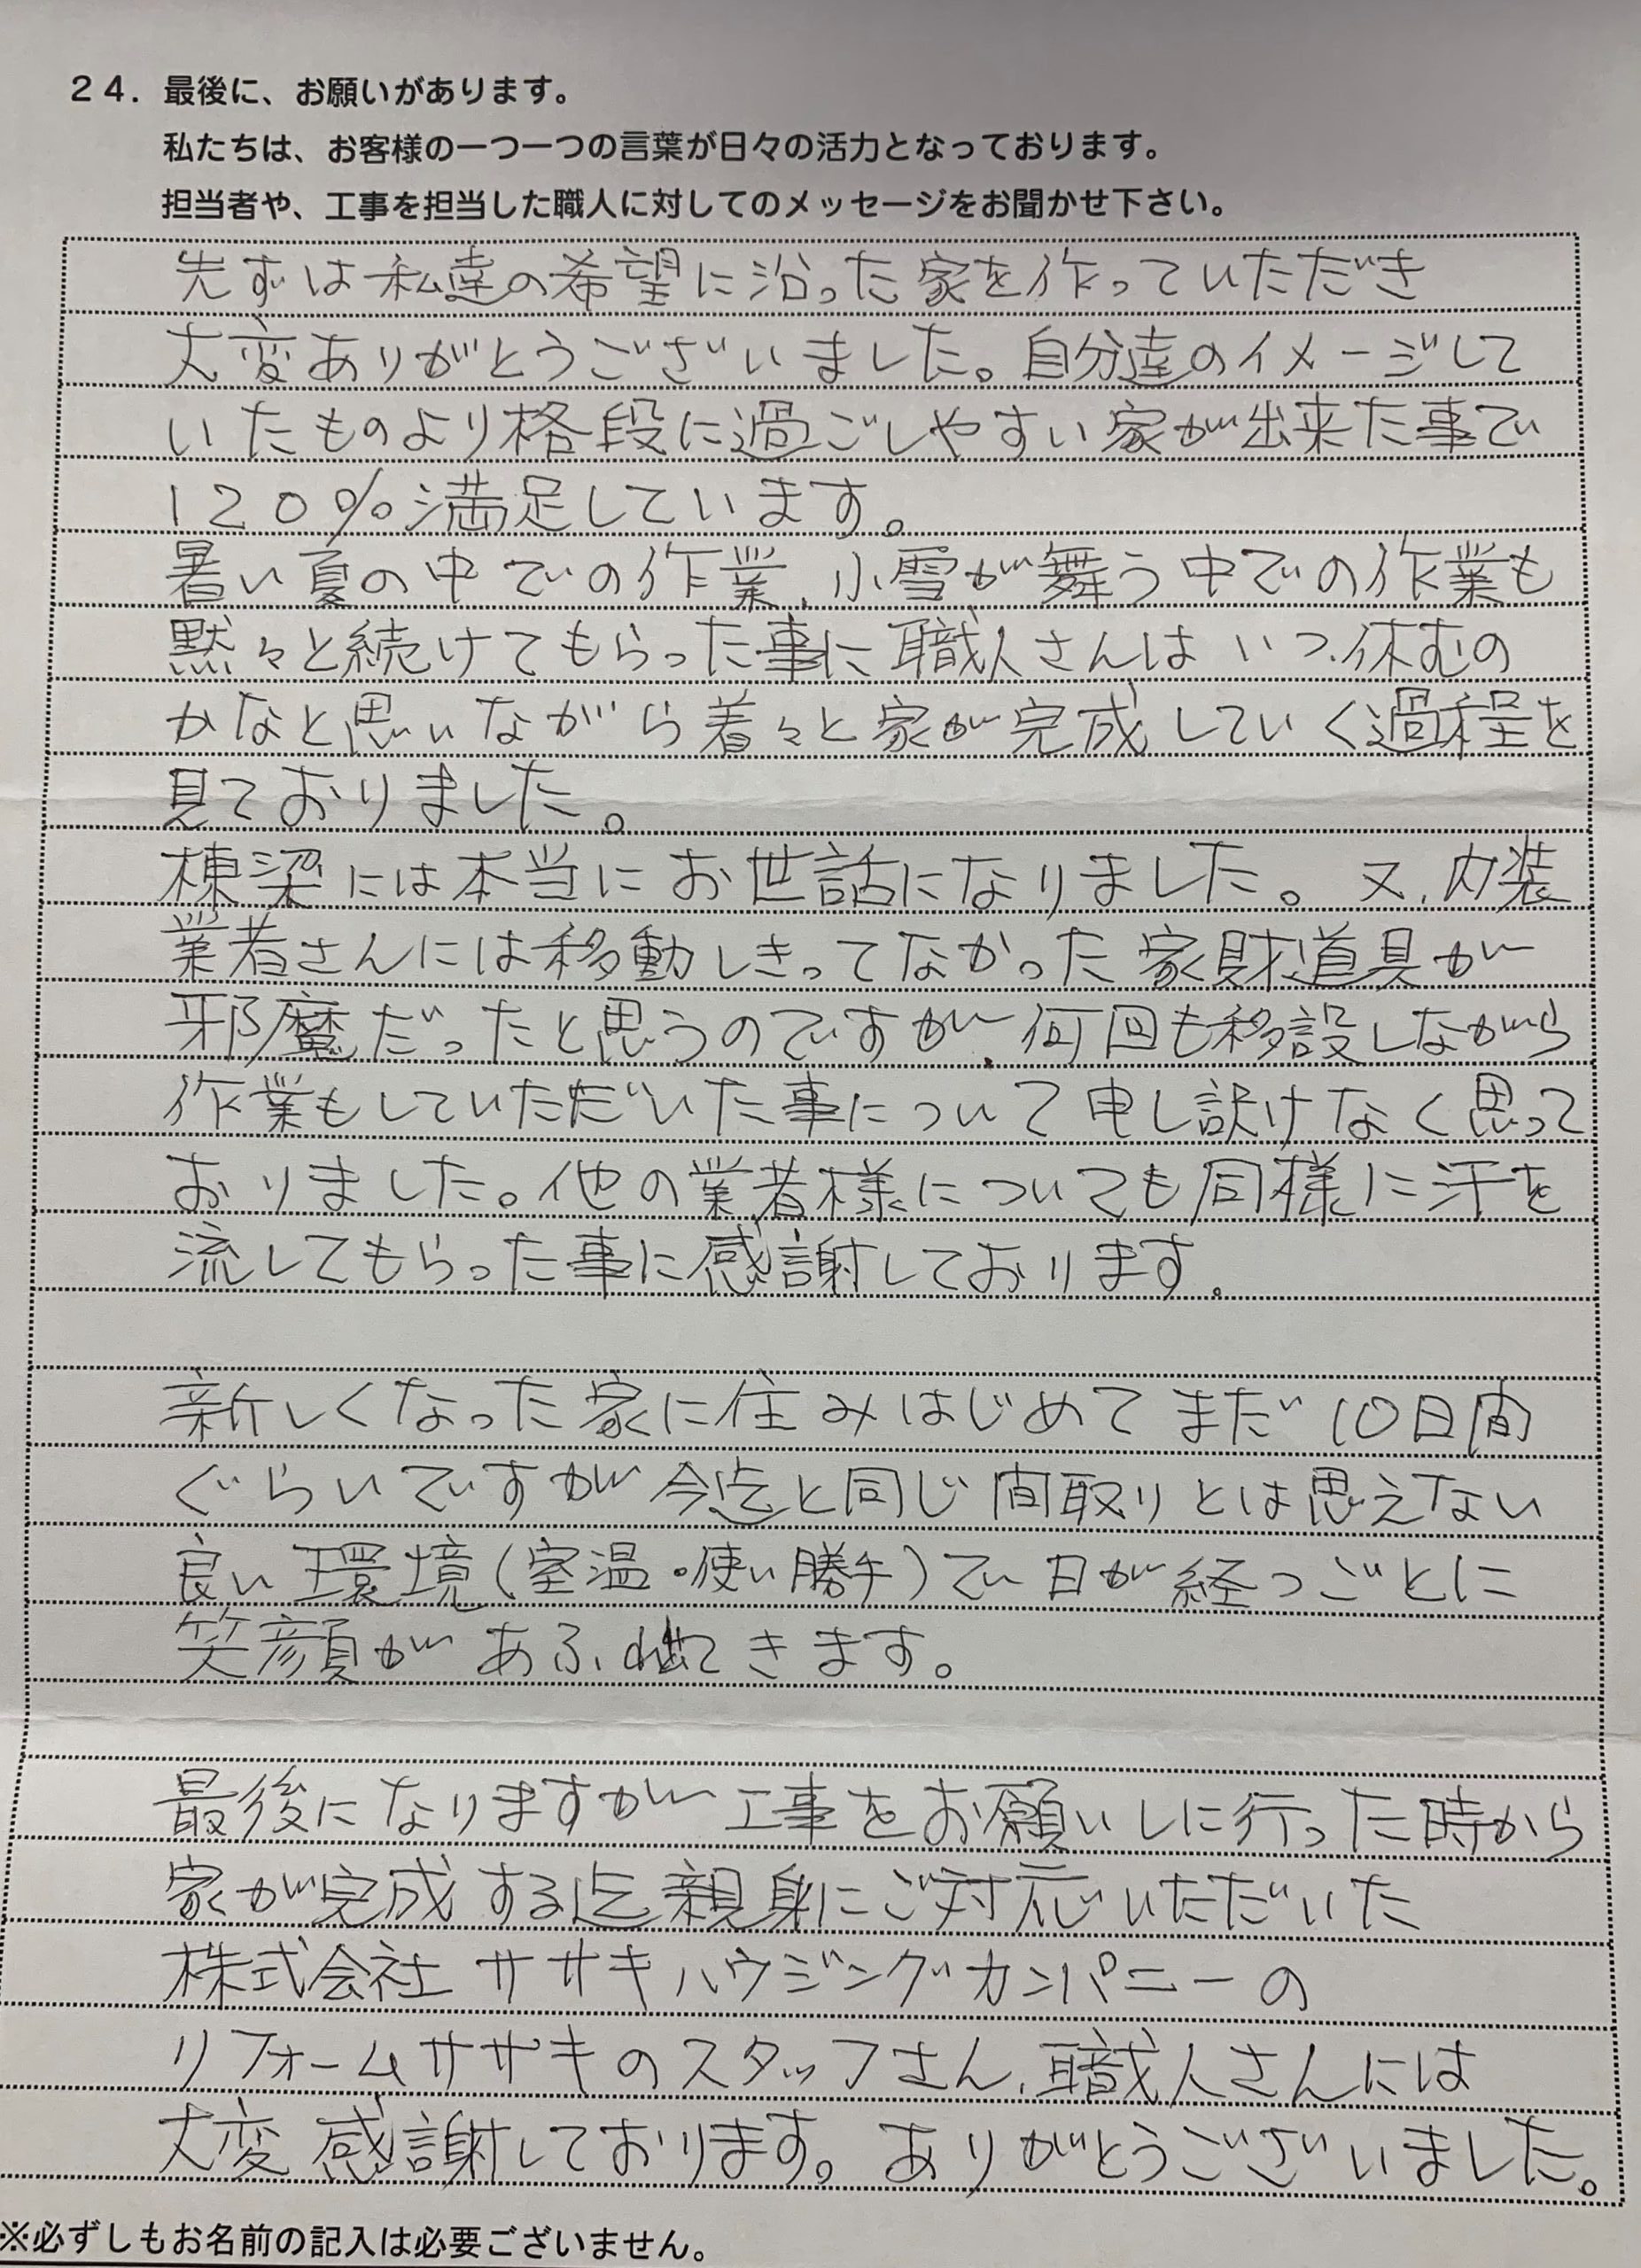 ２４．最後に、お願いがあります。
私たちは、お客様の一つ一つの言葉が日々の活力となっております。
担当者や、工事を担当した職人に対してのメッセージをお聞かせ下さい。
先ずは私達の希望に沿った家を作っていただき
大変ありがとうございました。自分達のイメージして
いたものより格段に過ごしやすい家が出来た事で
120%満足しています。
暑い夏の中での作業、小雪が舞う中での作業も
黙々と続けてもらった事に職人さんはいつ休むの
かなと思いながら着々と家が完成していく過程を
見ておりました。
棟梁には本当にお世話になりました。又、内装
業者さんには移動しきってなかった家財道具が
邪魔だったと思うのですが、何回も移設しながら
作業もしていただいた事について申し訳けなく思って
おりました。他の業者様についても同様に汗を
流してもらった事に感謝しております。
新しくなった家に住みはじめてまだ10日間
ぐらいですが今迄と同じ間取りとは思えない
良い環境(室温・使い勝手)で日が経つごとに
笑顔があふれ出てきます。
最後になりますが工事をお願いしに行った時から
家が完成する迄親身にご対応いただいた
株式会社ササキハウジングカンパニーの
リフォームササキのスタッフさん、職人さんには
大変感謝しております。ありがとうございました。
※必ずしもお名前の記入は必要ございません。